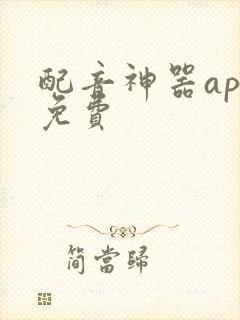 配音神器ap
免費
簡當歸